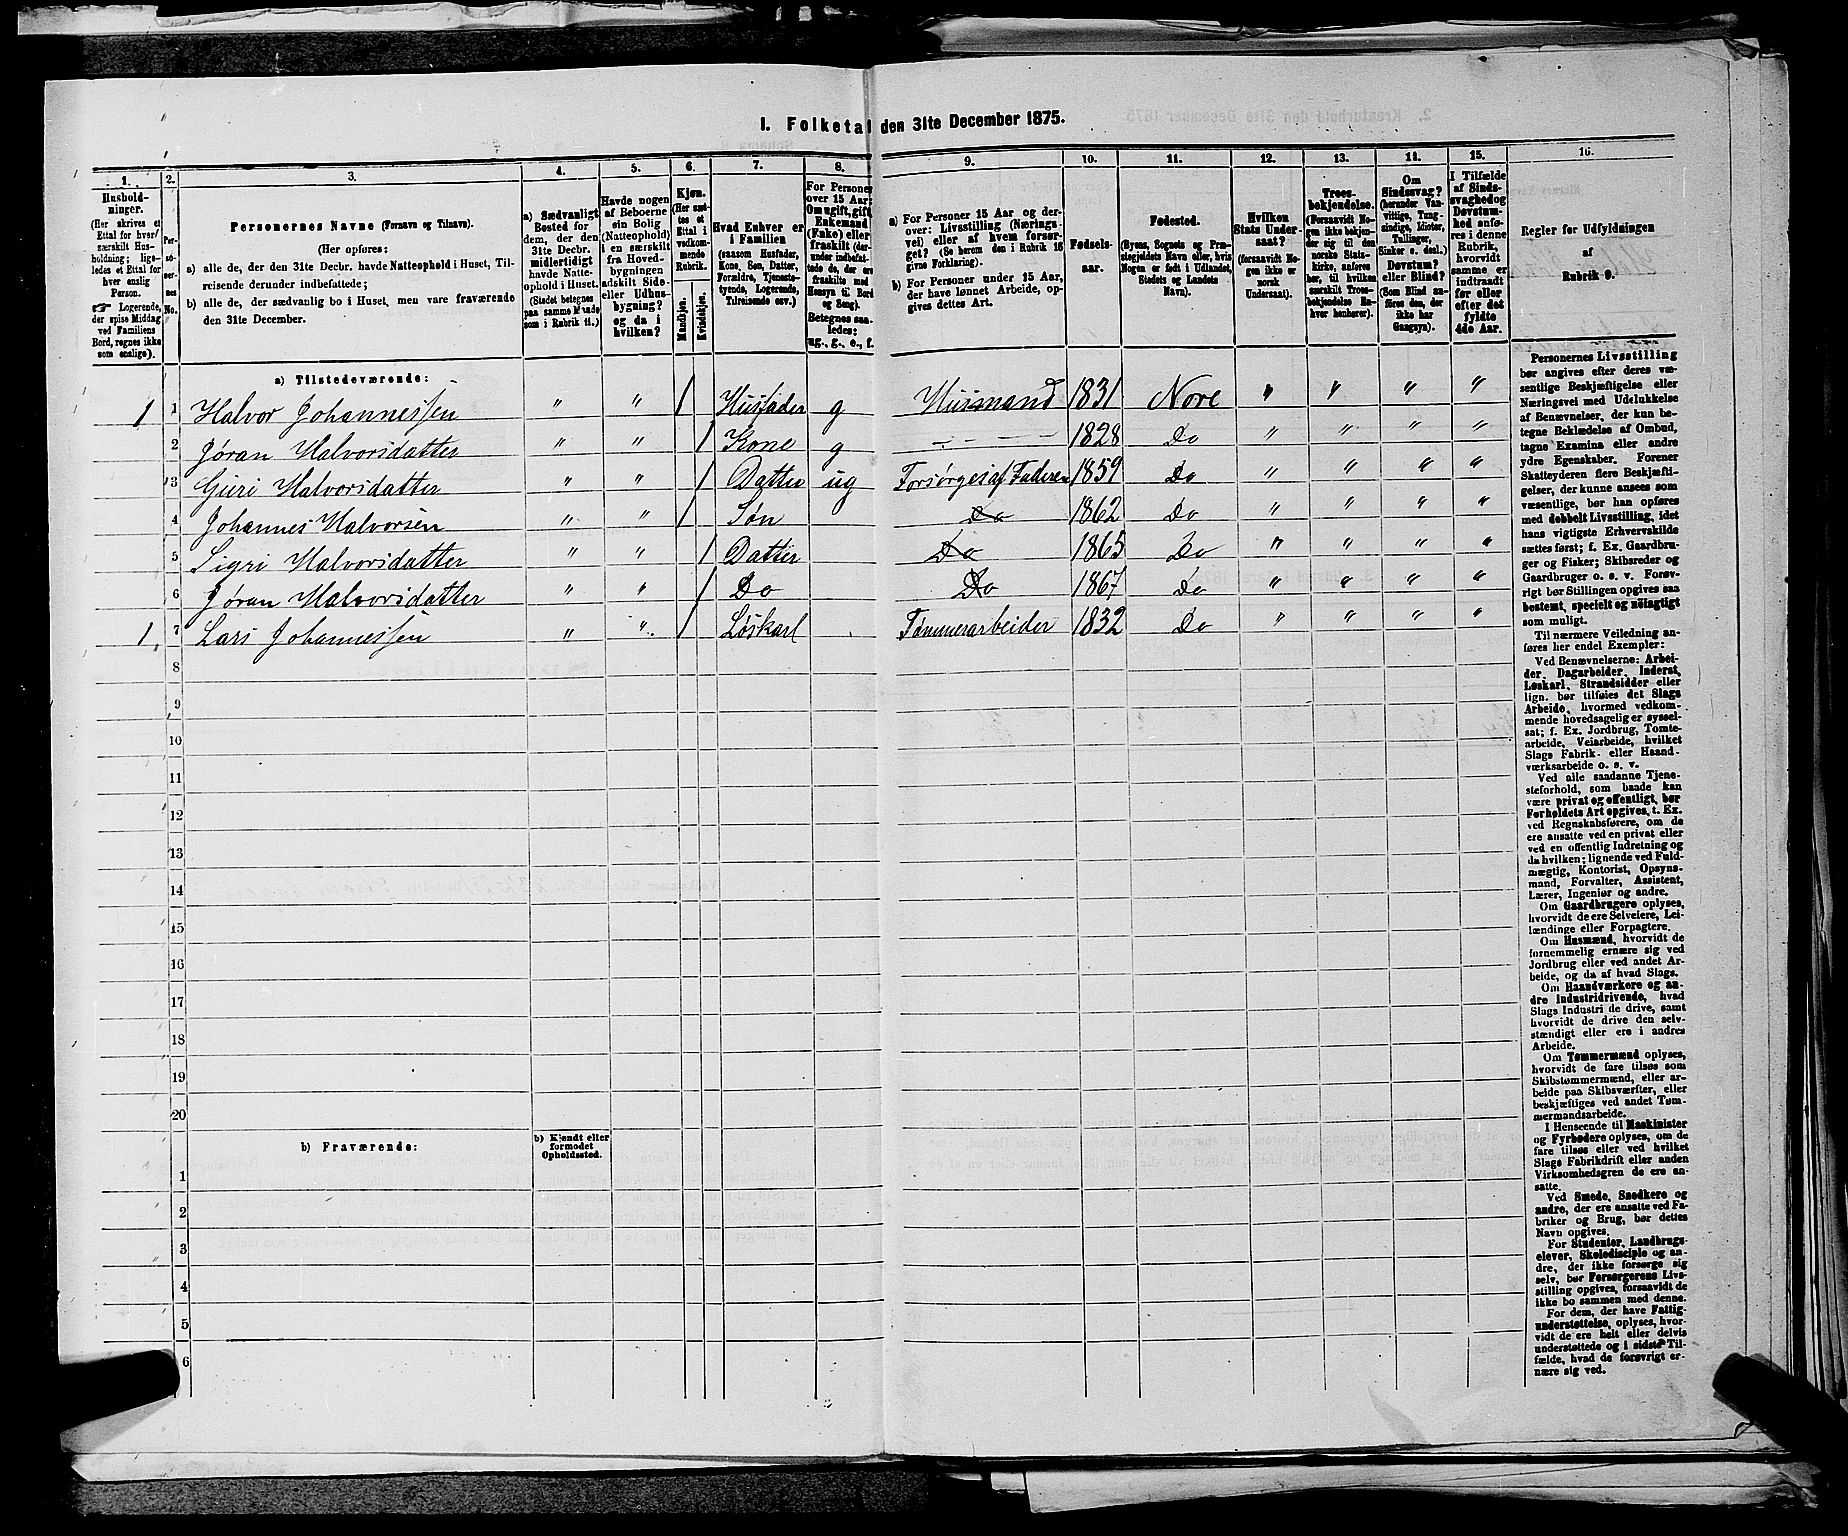 1. Folketal den 31te December 1875.
1.
2.
3.
4.
5.
6.
7.
8.
9.
10.
11.
12.
13.
14.
15.
16.
Hushold-
ninger.
(Her skrives et
Ettal for hver
særskilt Hus-
holdning; lige-
ledes et Ettal for
hver enslig
Person.
☛ Logerende,
der spise Middag
ved Familiens
Bord, regnes ikke
som enslige).
Personernes Navne (Fornavn og Tilnavn).
(Her opføres:
a) alle de, der den 31te Decbr. havde Natteophold i Huset, Til-
reisende derunder indbefattede;
b) alle de, der sædvanlig bo i Huset, men vare fraværende
den 31te December.
a) Sædvanligt
Bosted for
dem, der den
31te Decbr.
midlertidigt
havde Natte-
ophold i Huset.
(Stedet betegnes
paa samme Maade
som i Rubrik 11.)
Havde nogen
af Beboerne
sin Bolig
(Natteophold)
i en særskilt
fra Hoved-
bygningen
adskilt Side-
eller Udhus-
bygning?
og da i
hvilken?
Kjøn.
(Her sæt-
tes et
Ettal i
vedkom-
mende
Rubrik.
Mandkjøn.
Kvindekjøn.
Hvad Enhver er
i Familien
(saasom Husfader,
Kone, Søn, Datter,
Forældre, Tjeneste-
tyende, Logerende,
Tilreisende osv.)
For Personer
over 15 Aar:
Om ugift, gift,
Enkemand
(Enke) eller
fraskilt (der-
under indbefat-
tede de, der ere
fraskilte med
Hensyn til Bord
og Seng).
Betegnes saa-
ledes:
ug., g., e., f.
a) For Personer 15 Aar og der-
over: Livsstilling (Nærings-
vei) eller af hvem forsør-
get? (Se herom den i Rubrik 16
givne Forklaring).
b) For Personer under 15 Aar,
der have lønnet Arbeide, op-
gives dettes Art.
Fødsels-
aar.
Fødested.
(Byens, Sognets og Præ-
stegjeldets Navn eller, hvis
Nogen er født i Udlandet,
Stedets og Landets
Navn).
Hvilken
Stats Under-
saat?
(forsaavidt No-
gen ikke er
norsk
Undersaat).
Troes-
bekjendelse.
(Forsaavidt No-
gen ikke bekjen-
der sig til den
norske Stats-
kirke, anføres
her, til hvilken
særskilt Troes-
bekjendelse En-
hver henhører).
Om
Sindssvag?
(herunder Van-
vittige, Tung-
sindige, Idioter,
Tullinger,
Sinker o. desl.)
Døvstum?
eller Blind?
(Som Blind an-
føres den, der
ikke har
Gangsyn).
I Tilfælde
af Sinds-
svaghed og
Døvstum-
hed anfø-
res i denne
Rubrik,
hvorvidt
samme er
indtraadt
før eller
efter det
fyldte
4de Aar.
Regler for Udfyldningen
af
Rubrik 9.
a) Tilstedeværende:
1 1 Halvor Johannessen " " 1 Husfader g Husmand 1831 Nore " " " "
2 Jøran Halvorsdatter " " 1 Kone g - - - - 1828 Do " " " "
3 Guri Halvorsdatter " " 1 Datter ug Forsørges af Faderen 1859 Do " " " "
4 Johannes Halvorsen " " 1 Søn Do 1862 Do " " " "
5 Sigri Halvorsdatter " " 1 Datter Do 1865 Do " " " "
6 Jøran Halvorsdatter " " 1 Do Do 1867 Do " " " "
1 7 Lars Johannessen " " 1 Løskarl Tømmerarbeider 1832 Do " " " "
8
9
10
11
12
13
14
15
16
17
18
19
20
b) Fraværende:
b) Kjendt eller
formodet
Opholdssted.
1
2
3
4
5
6
Personernes Livsstilling
bør angives efter deres væ-
sentlige Beskjæftigelse eller
Næringsvei med Udelukkelse
af Benævnelser, der kun be-
tegne Beklædelse af Ombud,
tagne Examina eller andre
ydre Egenskaber. Forener
Skatteyderen flere Beskjæfti-
gelser, der kunne ansees som
væsentlige, bør han opføres
med dobbelt Livsstilling, idet
hans vigtigste Erhvervskilde
sættes først; f. Ex. Gaardbru-
ger og Fisker; Skibsreder og
Gaardbruger o. s. v. Forøv-
rigt bør Stillingen opgives saa
bestemt, specielt og nöiagtigt
som muligt.
Til nærmere Veiledning an-
føres her endel Exempler:
Ved Benævnelserne: Arbei-
der, Dagarbeider, Inderst,
Løskarl, Strandsidder eller
lign. bør tilføies det Slags
Arbeide, hvormed vedkom-
mende hovedsagelig er syssel-
sat; f. Ex. Jordbrug, Tomte-
arbeide, Veiarbeide, hvilket
Slags Fabrik- eller Haand-
værksarbeide o. s. v.
Ved alle saadanne Tjene-
steforhold, som baade kan
være privat og offentligt, bør
Forholdets Art opgives, t. Ex.
ved Regnskabsførere, om de
ere ansatte ved en privat eller
ved en offentlig Indretning og
da hvilken; lignende ved Fuld-
mægtig, Kontorist, Opsyns-
mand, Forvalter, Assistent,
Lærer, Ingeniør og andre.
Om Gaardbrugere oplyses,
hvorvidt de ere Selveiere, Lei-
lændinge eller Forpagtere.
Om Husmænd, hvorvidt de
fornemmelig ernære sig ved
Jordbrug eller ved andet Ar-
beide, og da af hvad Slags.
Om Haandværkere og an-
dre Industridrivende, hvad
Slags Industri de drive, samt
hvorvidt de drive den selv-
stændigt eller ere i andres
Arbeide.
Om Tømmermænd oplyses,
hvorvidt de fare tilsøs som
Skibstømmermænd, eller ar-
beide paa Skibsværfter, eller
beskjæftiges ved andet Tøm-
mermandsarbeide.
I Henseende til Maskinister
og Fyrbødere oplyses, om de
fare tilsøs eller ved hvilket
Slags Fabrikdrift eller anden
Virksomhedsgren de ere an-
satte.
Ved Smede, Snedkere og
andre, der ere ansatte ved Fa-
briker og Brug, bør dettes
Navn opgives.
For Studenter, Landbrugs-
elever, Skoledisciple og an-
dre, der ikke forsørge sig
selv, bør Forsørgerens Livs-
stilling opgives, forsaavidt de
ikke bo sammen med denne.
For dem, der have Fattig-
understøttelse, oplyses, hvor-
vidt de ere helt eller delvis
understøttede og i sidste Til-
fælde, hvad de forøvrigt er-
nære sig ved.